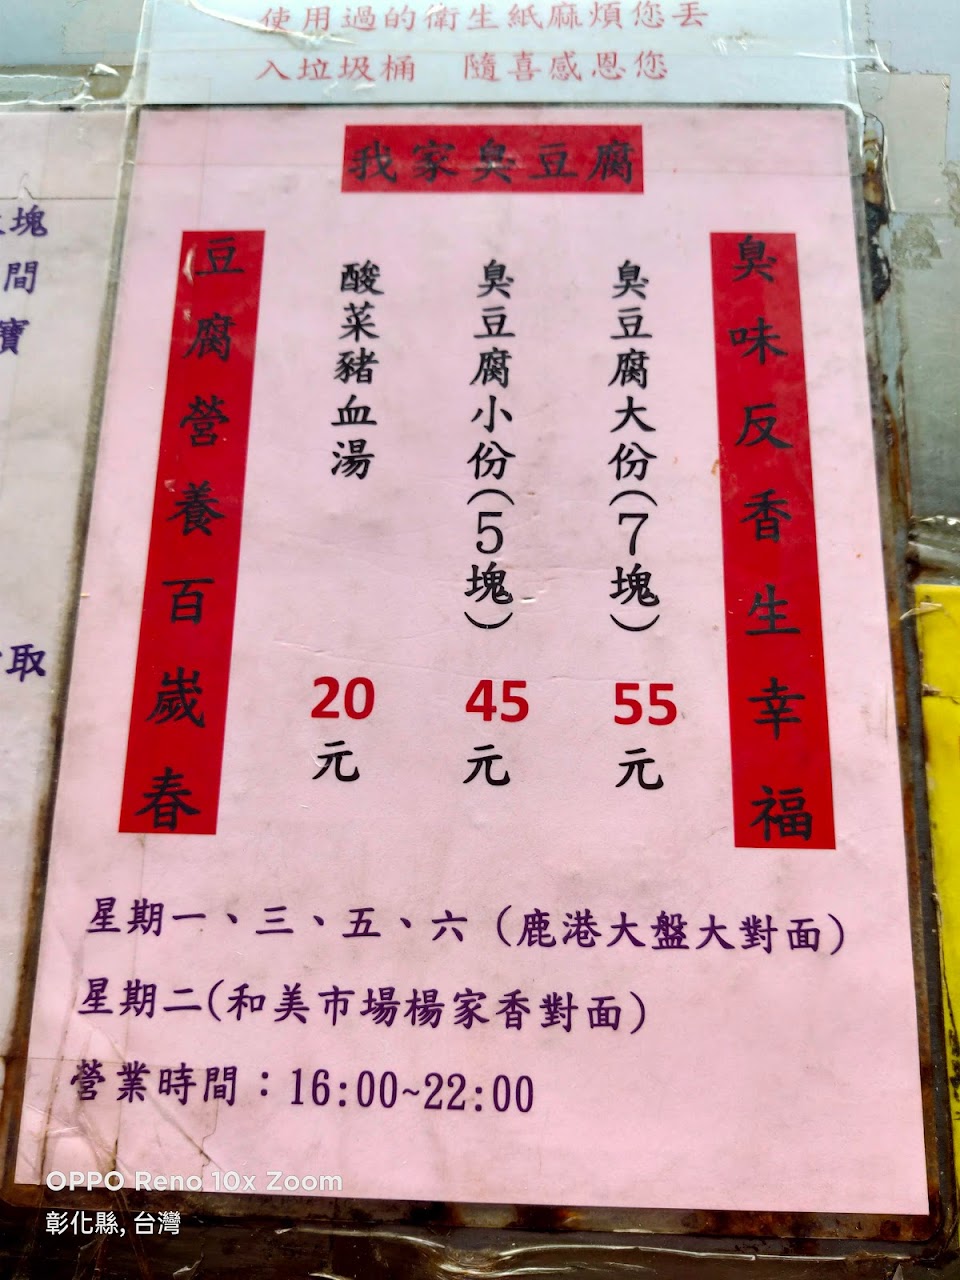 使用過的衛生紙麻煩您丟
入垃圾桶 隨喜感恩您
我家臭豆腐
臭味反香生幸福
臭豆腐大份(7塊) 55元
臭豆腐小份(5塊) 45元
酸菜豬血湯 20元
豆腐營養百歲春
星期一、三、五、六 (鹿港大盤大對面)
星期二(和美市場楊家香對面)
營業時間：16:00~22:00
塊
間
寶
取
OPPO Reno 10x Zoom
彰化縣, 台灣